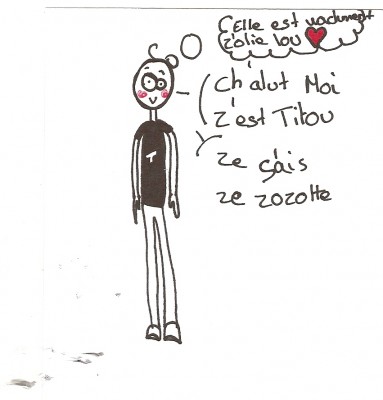 Celle est vachment
z'olie lou
ch'alut Moi
z'est Titou
ze çais
ze zozotte
T